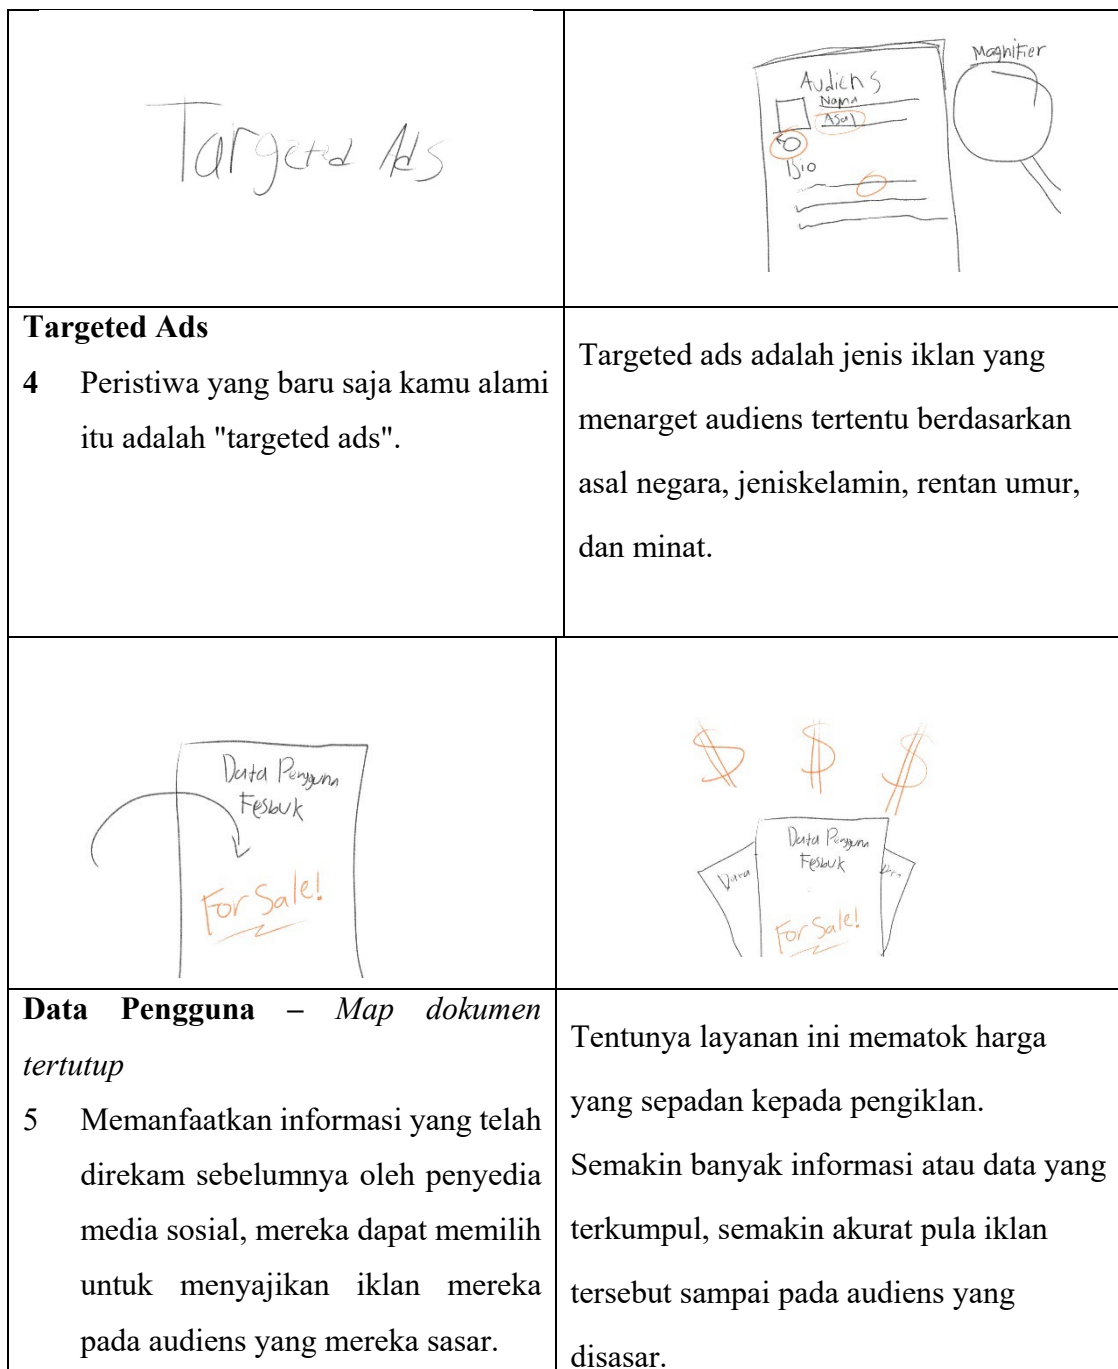 Targeted Ads
Magnifier
Audiens
Nama
Asal
Bio
Targeted Ads
4 Peristiwa yang baru saja kamu alami
itu adalah "targeted ads".
Targeted ads adalah jenis iklan yang
menarget audiens tertentu berdasarkan
asal negara, jeniskelamin, rentan umur,
dan minat.
Data Pengguna
Fesbuk
For Sale!
$ $ $
Data Pengguna
Fesbuk
Data
Data
For Sale!
Data Pengguna – Map dokumen
tertutup
5 Memanfaatkan informasi yang telah
direkam sebelumnya oleh penyedia
media sosial, mereka dapat memilih
untuk menyajikan iklan mereka
pada audiens yang mereka sasar.
Tentunya layanan ini mematok harga
yang sepadan kepada pengiklan.
Semakin banyak informasi atau data yang
terkumpul, semakin akurat pula iklan
tersebut sampai pada audiens yang
disasar.